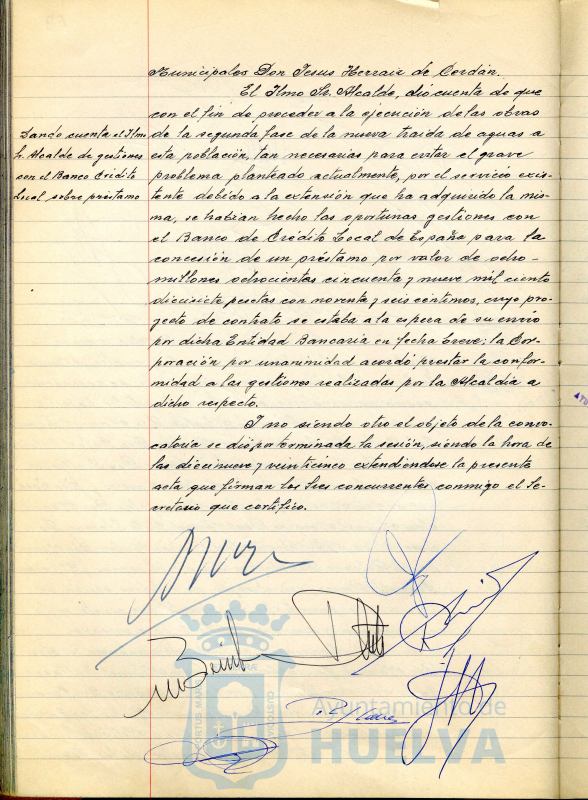 Municipales Don Jesus Herraiz de Cerdán.
El Ilmo Sr. Alcalde, dio cuenta de que
con el fin de proceder a la ejecución de las obras
Dando cuenta el Ilmo
Sr. Alcalde de gestiones
con el Banco Crédito
Local sobre préstamo
de la segunda fase de la nueva traida de aguas a
esta población, tan necesarias para evitar el grave
problema planteado actualmente, por el servicio exis-
tente debido a la extensión que ha adquirido la mis-
ma, se habian hecho las oportunas gestiones con
el Banco de Crédito Local de España para la
concesión de un préstamo por valor de ocho-
millones ochocientas cincuenta y nueve mil ciento
diecisiete pesetas con noventa y seis céntimos, cuyo pro-
yecto de contrato se estaba a la espera de su envio
por dicha Entidad Bancaria en fecha breve; la Cor-
poración por unanimidad acordó prestar la confor-
midad a las gestiones realizadas por la Alcaldía a
dicho respecto.
Y no siendo otro el objeto de la convo-
catoria se dió por terminada la sesión, siendo la hora de
las diecinueve y veinticinco extendiéndose la presente
acta que firman los Sres concurrentes conmigo el Se-
cretario que certifico.
Ayuntamiento de
HUELVA